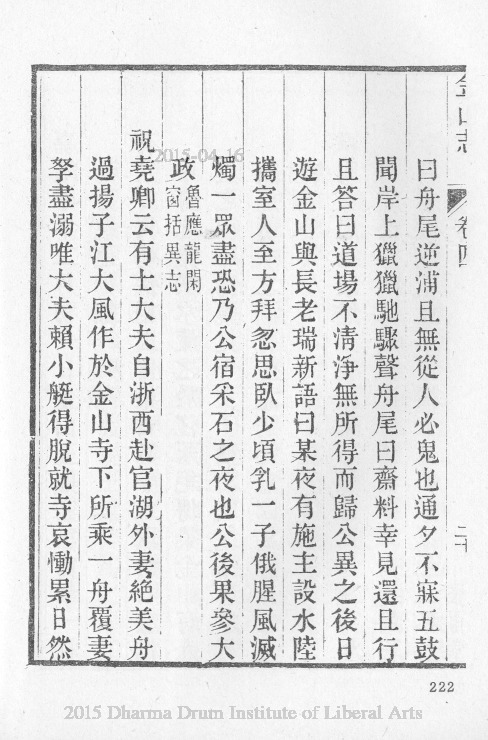 金山志 卷四 二十
曰舟尾逆浦且無從人必鬼也通夕不寐五鼓
聞岸上獵獵馳驟聲舟尾曰齋料幸見還且行
且答曰道場不清淨無所得而歸公異之後日
遊金山與長老瑞新語曰某夜有施主設水陸
攜室人至方拜忽思臥少頃乳一子俄腥風滅
燭一眾盡恐乃公宿采石之夜也公後果參大
政 魯應龍閑窗括異志
祝堯卿云有士大夫自浙西赴官湖外妻絕美舟
過揚子江大風作於金山寺下所乘一舟覆妻
孥盡溺唯大夫賴小艇得脫就寺哀慟累日然
2015-04-16
222
2015 Dharma Drum Institute of Liberal Arts